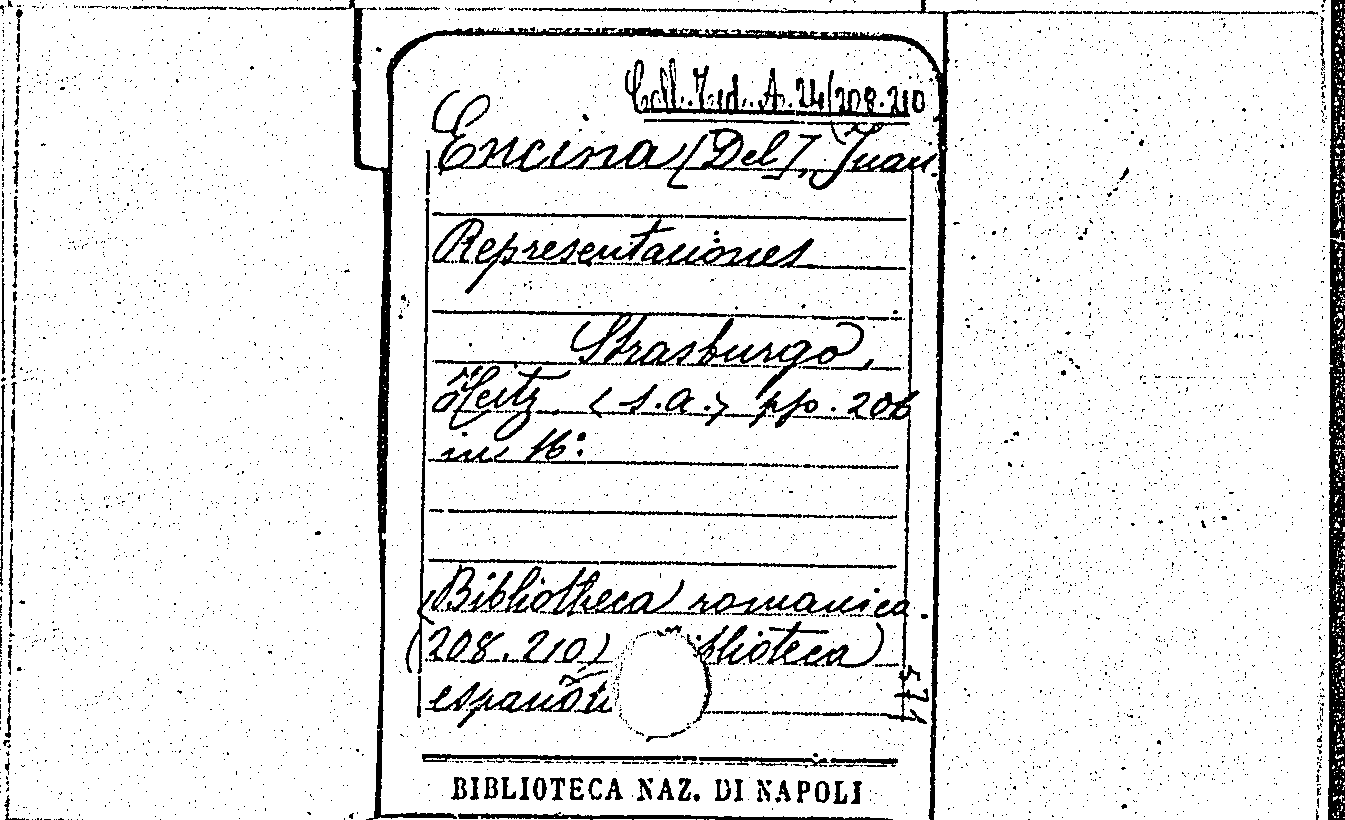 Coll. Ted. A. 24/208.210
Encina [Del], Juan.
Representaciones
Strasburgo,
Heitz (s.a.) pp. 206
in 16º
(Bibliotheca romanica.
(208.210) Biblioteca
española
571
BIBLIOTECA NAZ. DI NAPOLI